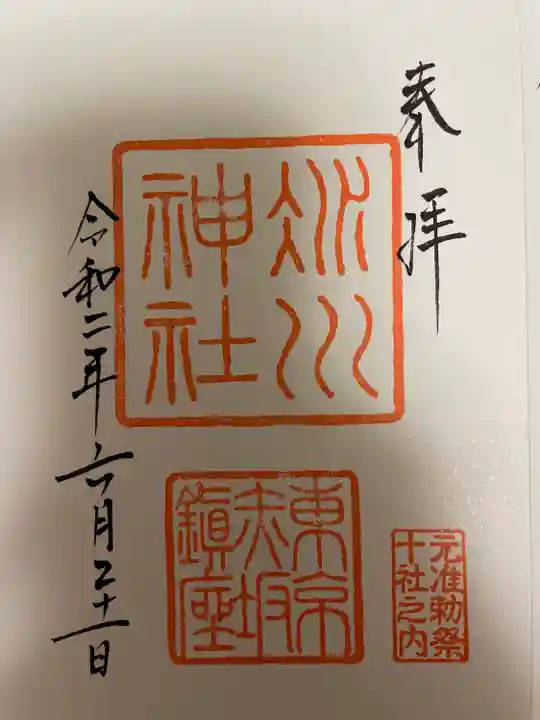 奉拝
氷川
神社
東京
赤坂
鎭座
元准勅祭
十社之内
令和二年六月二十一日